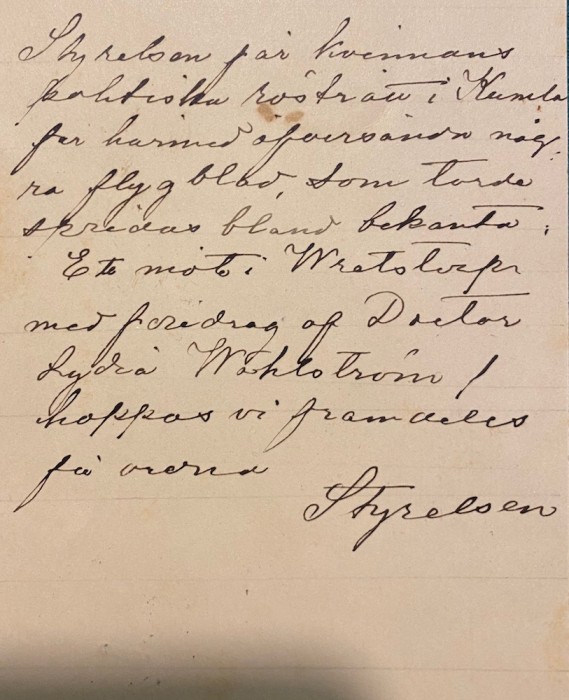 Styrelsen för kvinnans
politiska rösträtt i Kumla
får härmed öfversända någ-
ra flygblad, som torde
spridas bland bekanta.
Ett möte i Wretstorp
med föredrag af Doctor
Lydia Wahlström
hoppas vi framdeles
få ordna
Styrelsen